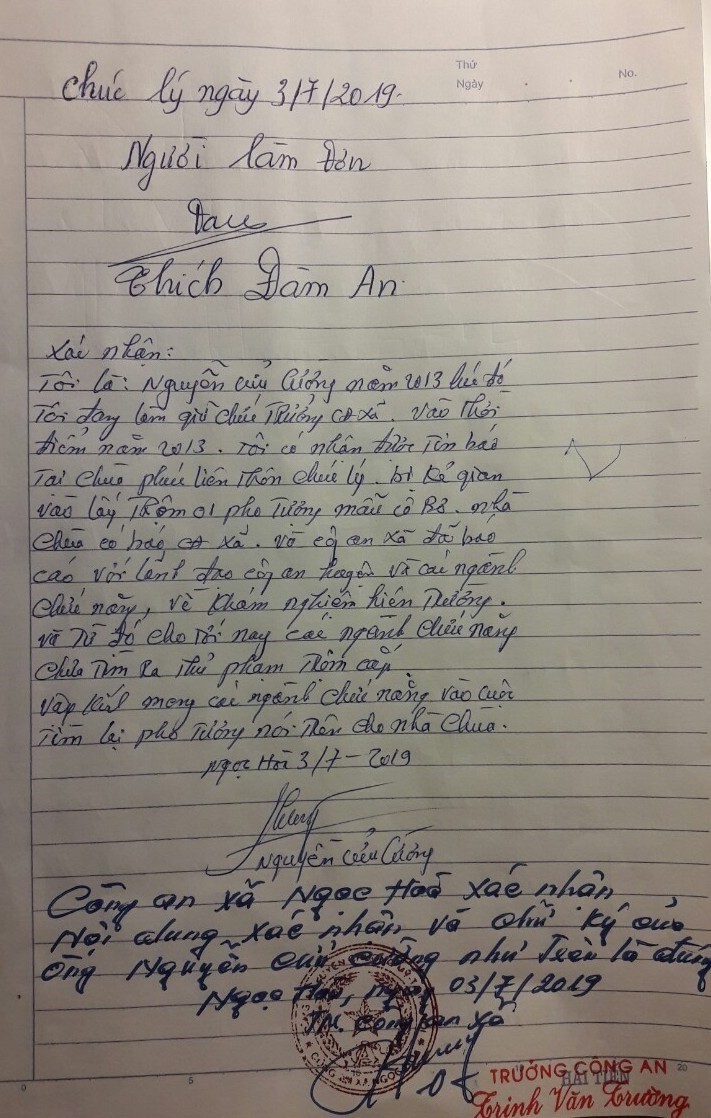 Thứ
Ngày
No.
Chúc lý ngày 3/7/2019.
Người làm Đơn
Thích Đàm An.
Xác nhận:
Tôi là: Nguyễn Cửu Cường năm 2013 lúc đó
Tôi đang làm giữ chức Trưởng CA xã. vào thời
điểm năm 2013. Tôi có nhận được Tin báo
Tại chùa phúc liên Thôn chúc lý. bị kẻ gian
vào lấy Trộm 01 pho Tượng mẫu cô Bơ. nhà
chùa có báo CA xã. và công an xã đã báo
cáo với lãnh đạo công an huyện và các ngành
chức năng, về khám nghiệm hiện Trường.
và Từ đó cho Tới nay các ngành chức năng
chưa Tìm Ra Thủ phạm Trộm cắp
vậy kính mong các ngành chức năng vào cuộc
Tìm lại pho Tượng nói Trên cho nhà chùa.
Ngọc Hòa 3/7-2019
Nguyễn Cửu Cường
Công an xã Ngọc Hoà xác nhận
Nội dung xác nhận và chữ ký của
Ông Nguyễn Cửu Cường như Trên là đúng
Ngọc Hoà, ngày 03/7/2019
TM. Công an xã
TRƯỞNG CÔNG AN
HẢI TIẾN
Trịnh Văn Trường
0
5
20